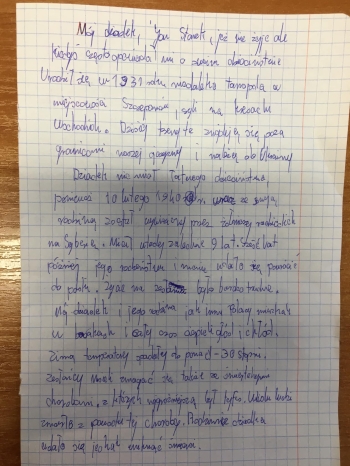 Mój dziadek, Jan Stanek, już nie żyje ale
kiedyś często opowiadał mi o swoim dzieciństwie
Urodził się w 1931 roku niedaleko Tarnopola w
miejscowości Szczepanów, czyli na kresach
Wschodnich. Dzisiaj tereny te znajdują się poza
granicami naszej ojczyzny i należą do Ukrainy
Dziadek nie miał łatnego dzieciństwa
ponieważ 10 lutego 1940 r. wraz ze swoją
rodziną został wywieziony przez żołnierzy radzieckich
na Syberię. Miał wtedy zaledwie 9 lat. Sześć lat
później jego rodzeństwu i mamie udało się powrócić
do polski. Życie na było bardzo trudne.
Mój dziadek i jego rodzina jak inni Polacy mieszkali
w barakach i cały czas cierpieli głód i chłód.
Zimą temperatury spadały do ponad -30 stopni.
zesłańcy musieli zmagać się także ze śmiertelnymi
chorobami, z których najgroźniejszą był tyfus. Wielu ludzi
zmarło z powodu tej choroby. Rodzinie dziadka
udało się jednak uniknąć